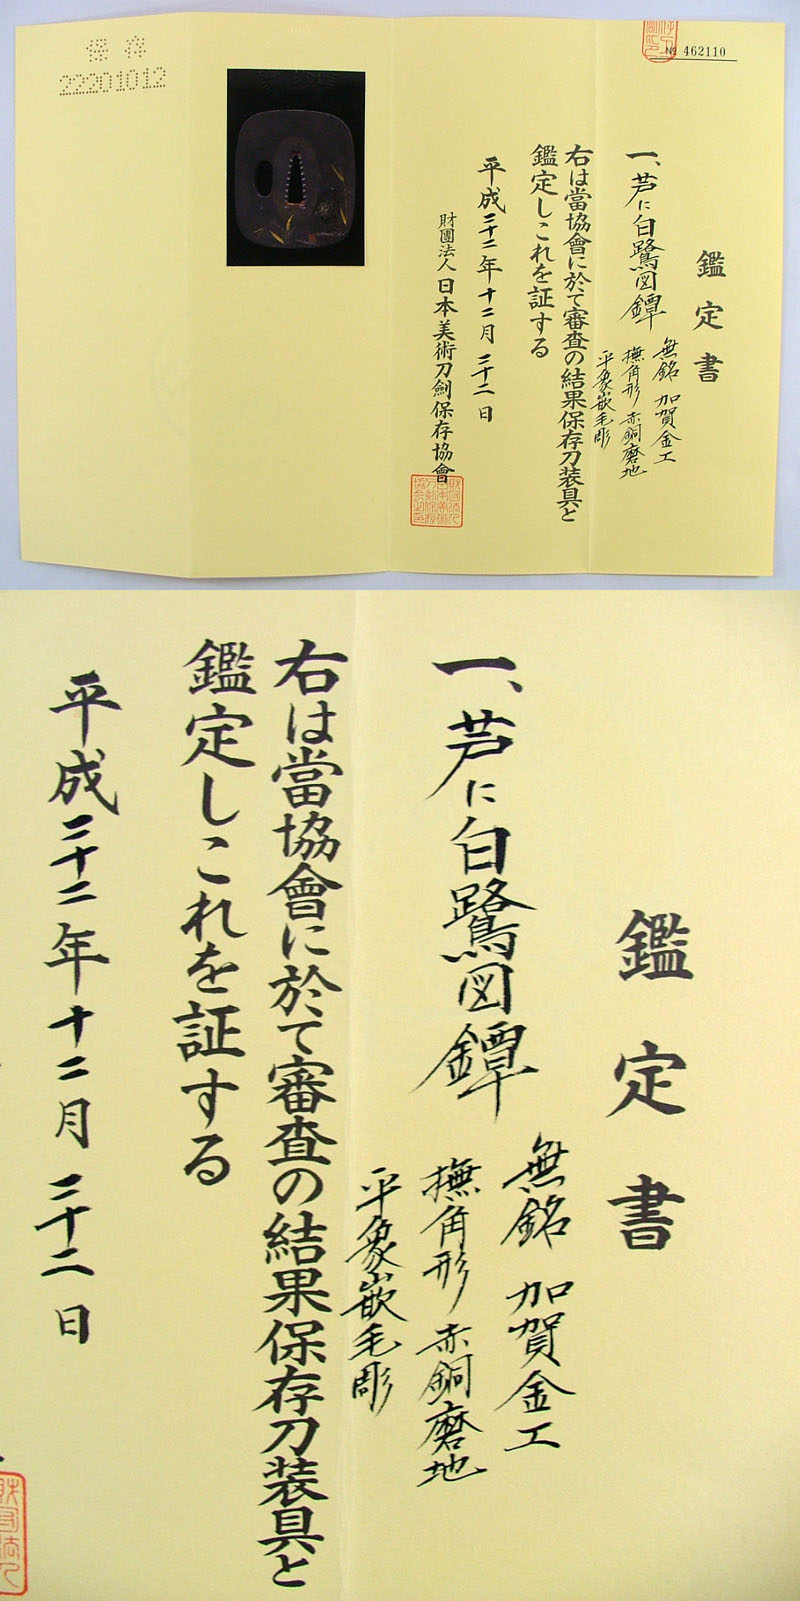 保存
22201012
№ 462110
鑑定書
一、芦に白鷺図鐔
無銘 加賀金工
撫角形 赤銅磨地
平象嵌毛彫
右は當協會に於て審査の結果保存刀装具と
鑑定しこれを証する
平成二十二年十二月二十二日
財團法人日本美術刀劍保存協會
鑑定書
一、芦に白鷺図鐔
無銘 加賀金工
撫角形 赤銅磨地
平象嵌毛彫
右は當協會に於て審査の結果保存刀装具と
鑑定しこれを証する
平成二十二年十二月二十二日